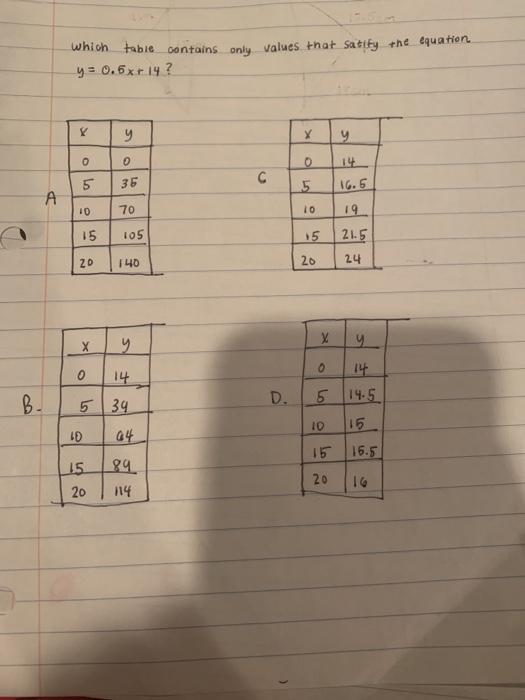 which table contains only values that satify the equation
y = 0.5x + 14 ?
A
x y
0 0
5 35
10 70
15 105
20 140
C
x y
0 14
5 16.5
10 19
15 21.5
20 24
B.
x y
0 14
5 39
10 64
15 89
20 114
D.
x y
0 14
5 14.5
10 15
15 15.5
20 16